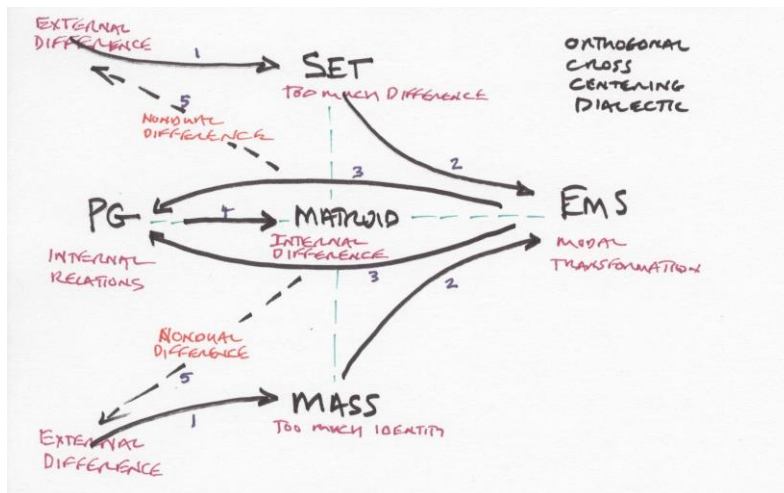 EXTERNAL
DIFFERENCE
1
SET
TOO MUCH DIFFERENCE
ORTHOGONAL
CROSS
CENTERING
DIALECTIC
5
NONDUAL
DIFFERENCE
2
3
PG
4
MATROID
EMS
INTERNAL
RELATIONS
INTERNAL
DIFFERENCE
MODAL
TRANSFORMATION
3
2
NONDUAL
DIFFERENCE
5
1
MASS
TOO MUCH IDENTITY
EXTERNAL
DIFFERENCE